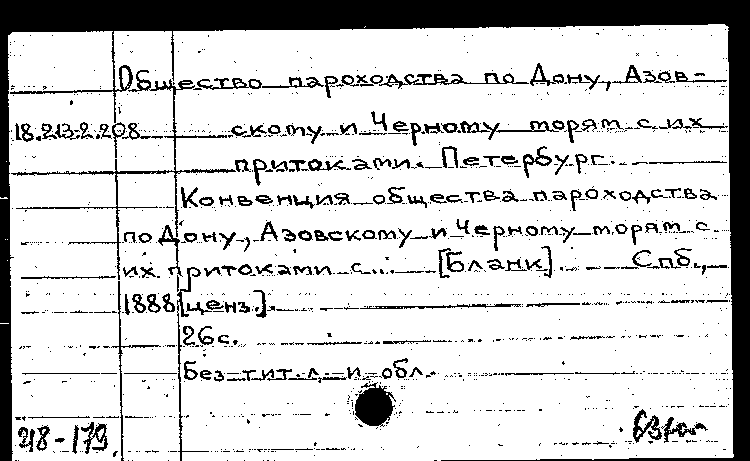 Общество пароходства по Дону, Азов-
18.213.2.208 скому и Черному морям с их
притоками. Петербург.
Конвенция общества пароходства
по Дону, Азовскому и Черному морям с
их притоками с... [Бланк]. Спб.,
1888 [ценз.].
26 с.
Без тит. л. и обл.
218-179